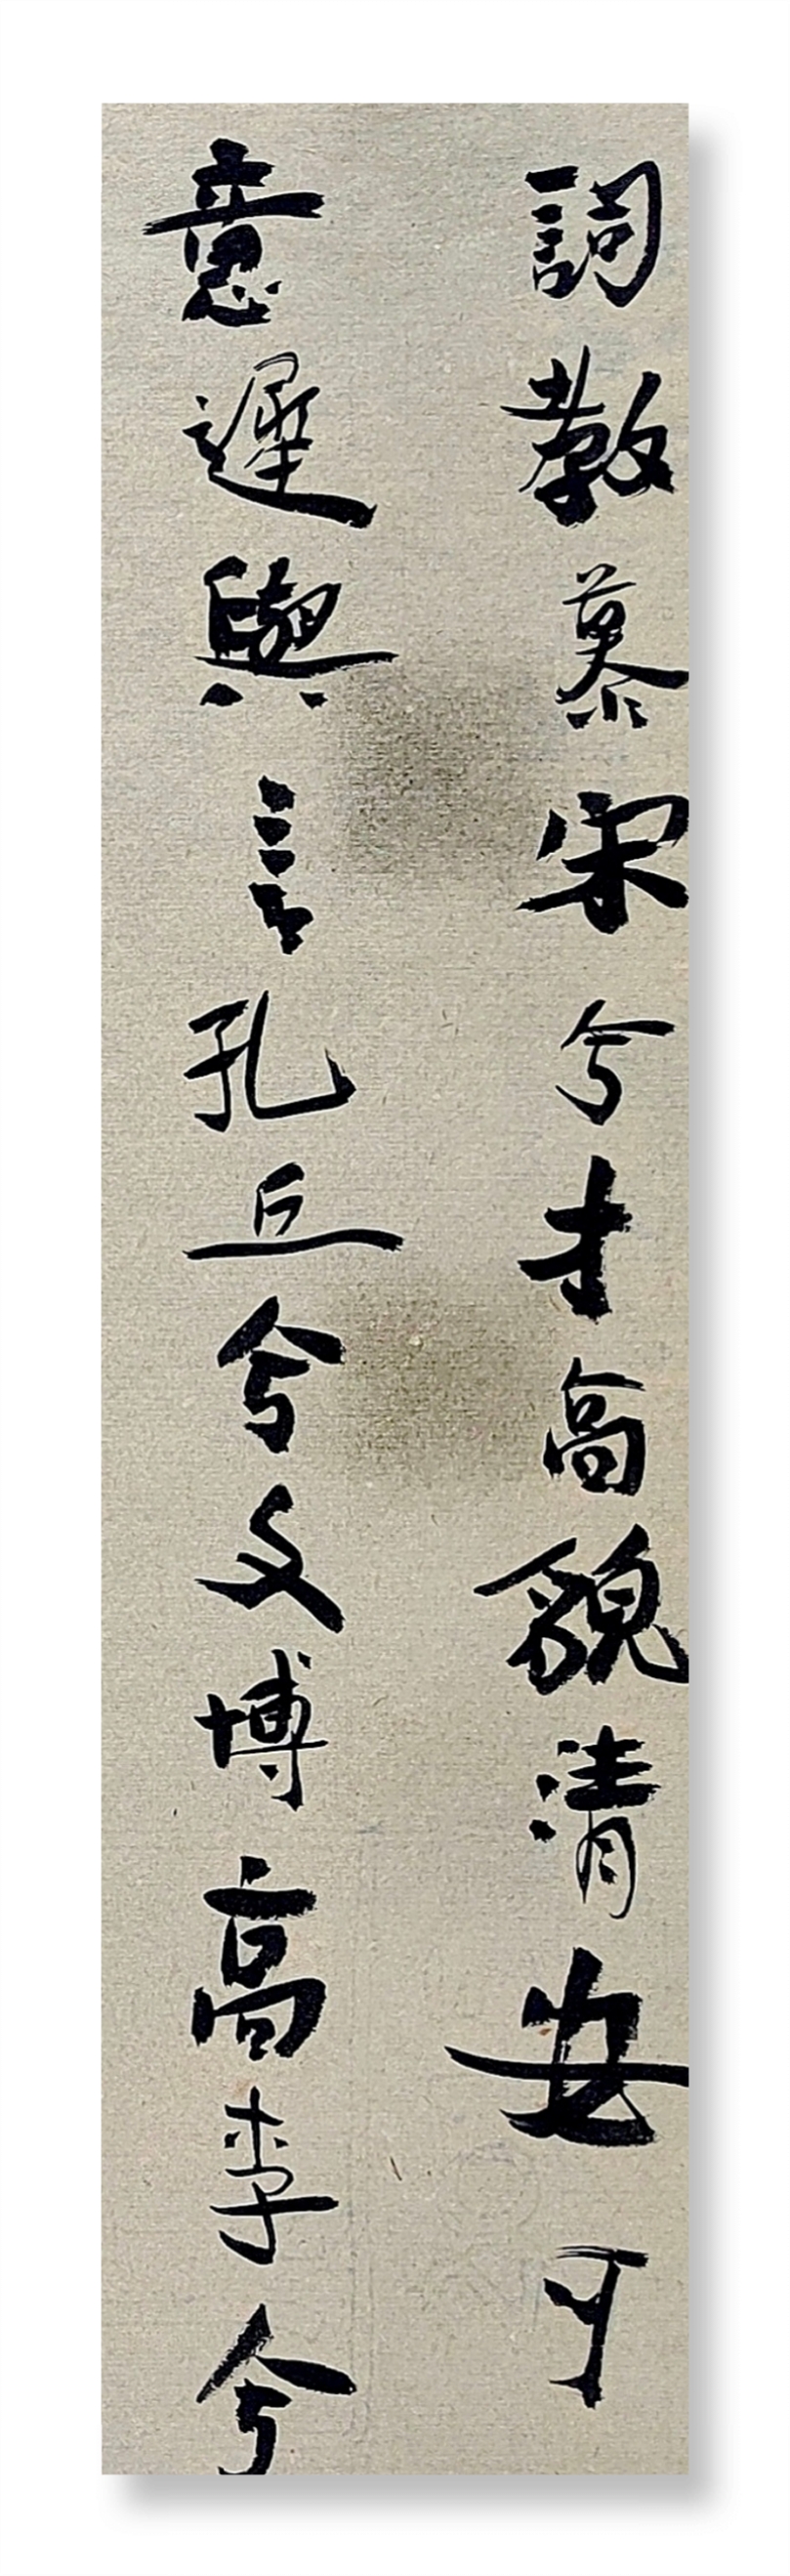 詞教慕宋兮才高貌清安可
意遲與言孔丘兮文博高李兮